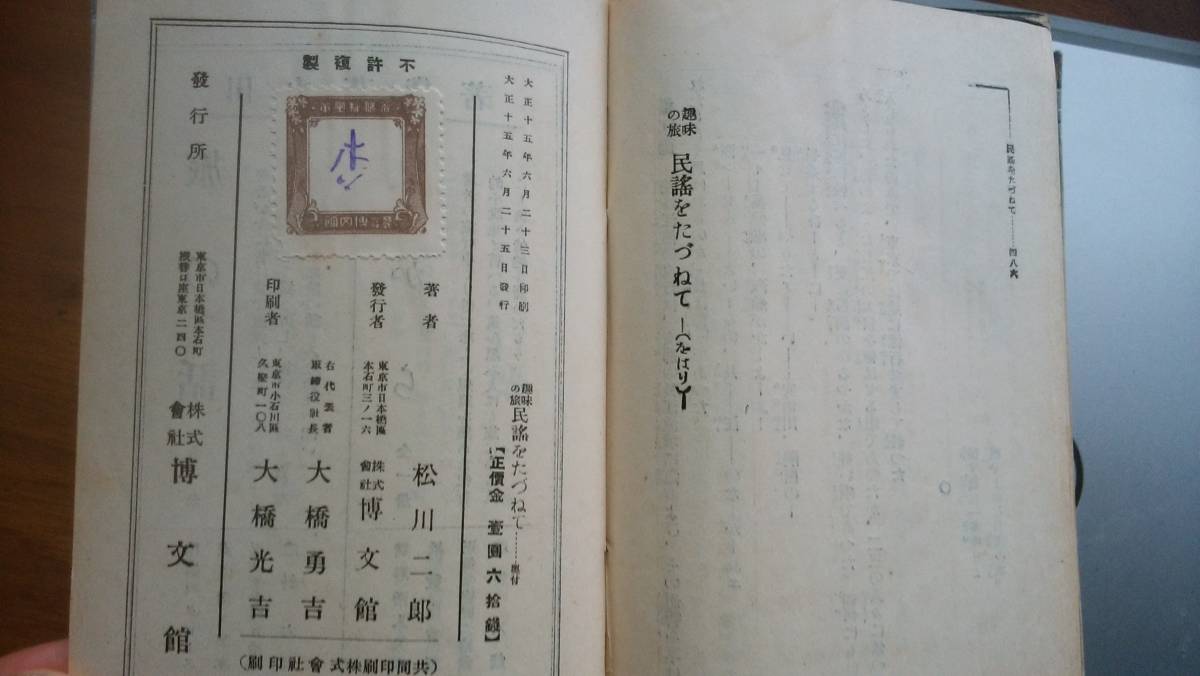 民謠をたづねて………四八六
趣味の旅 民謠をたづねて―(をはり)―
趣味の旅 民謠をたづねて………奧付
【正價金 壹圓六拾錢】
大正十五年六月二十三日印刷
大正十五年六月二十五日發行
不許復製
著者 松川二郎
發行者 東京市日本橋區本石町三ノ一六 株式會社 博文館
右代表者 取締役社長 大橋勇吉
印刷者 東京市小石川區久堅町一〇八 大橋光吉
發行所 東京市日本橋區本石町 振替口座東京二四〇 株式會社 博文館
(共同印刷株式會社印刷)